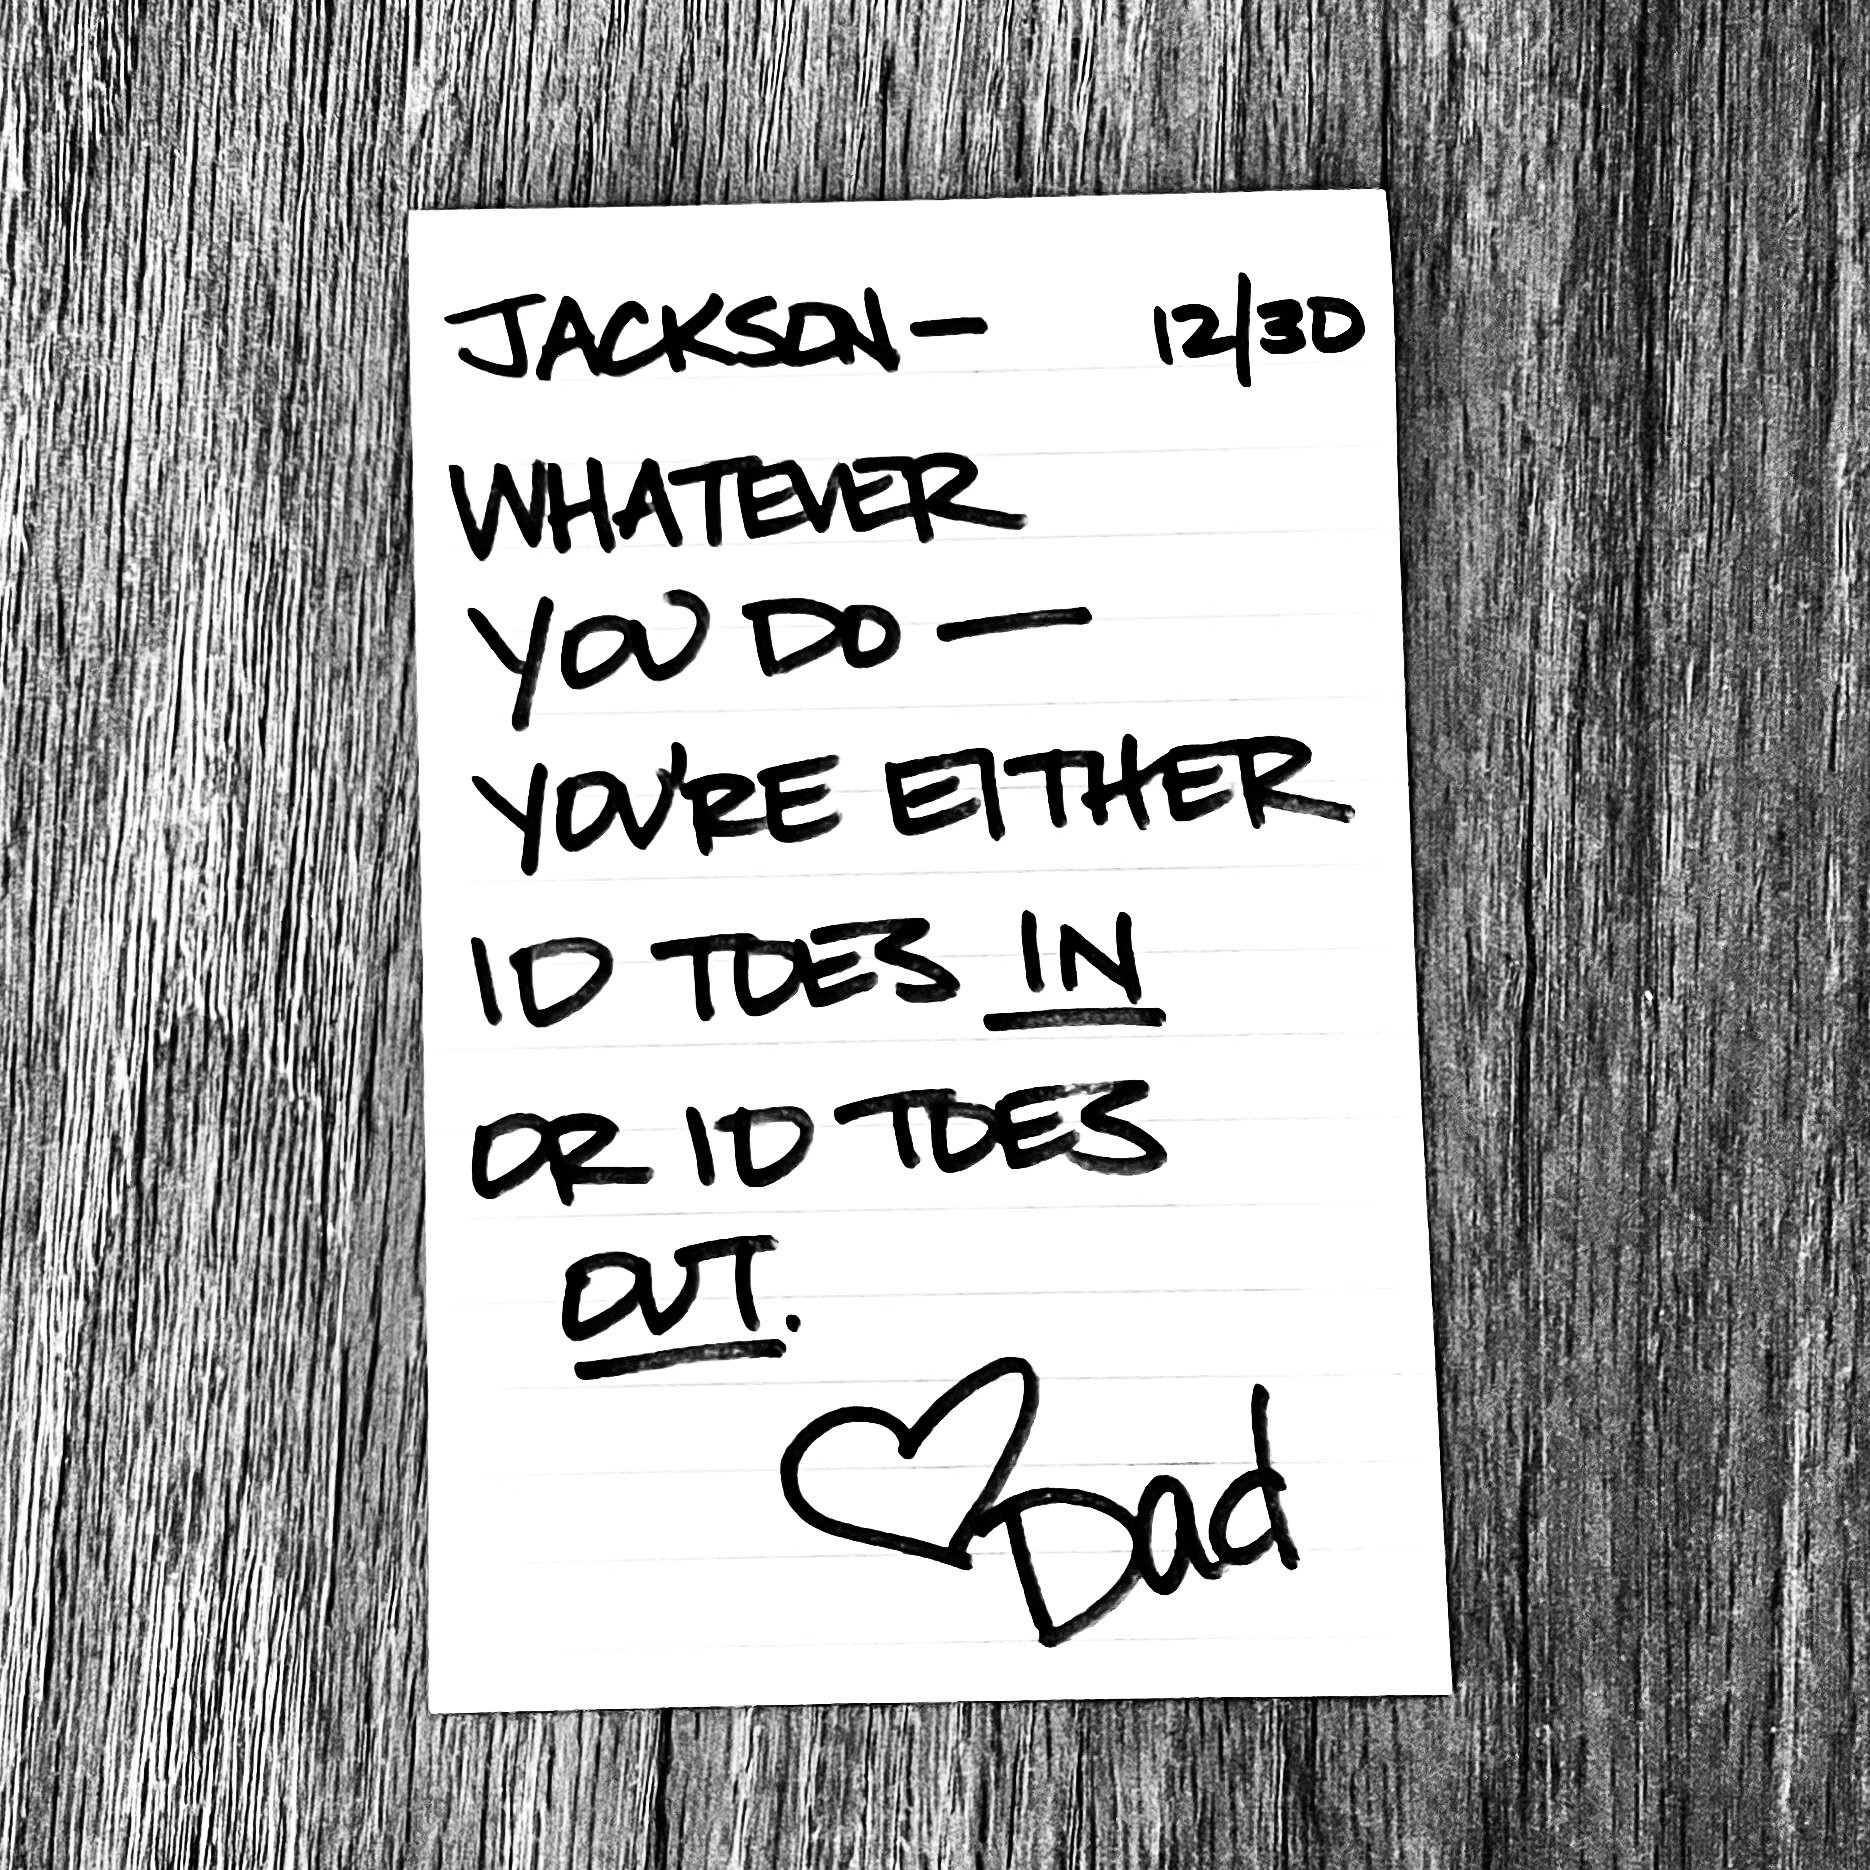 JACKSON— 12/30
WHATEVER
YOU DO—
YOU'RE EITHER
10 TOES IN
OR 10 TOES
OUT.
♡ Dad